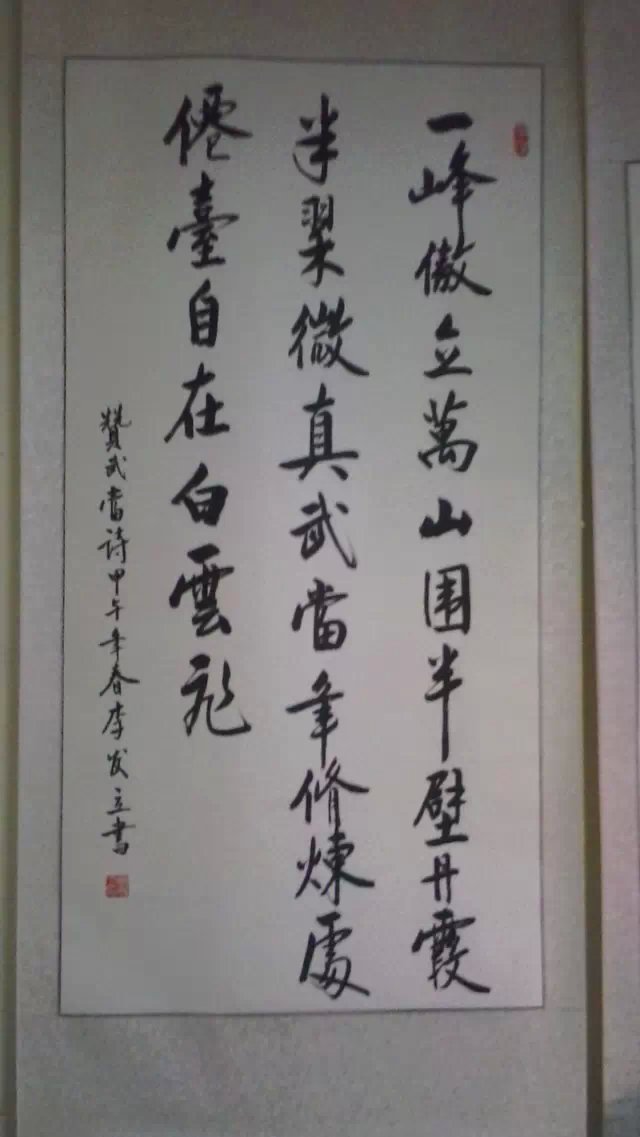 一峰傲立萬山围半壁丹霞
半翠微真武當年脩煉處
僊臺自在白雲飛
贊武當詩甲午年春李发立書